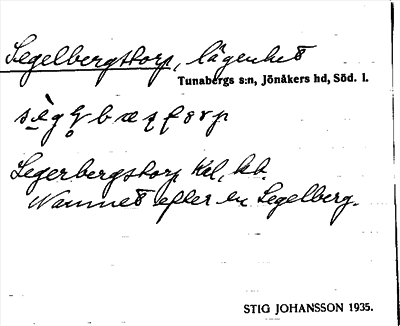 Segelbergstorp, lägenhet
Tunabergs s:n, Jönåkers hd, Söd. l.
Segerbergstorp Kel, kb.
Namnet efter en Segelberg.
STIG JOHANSSON 1935.